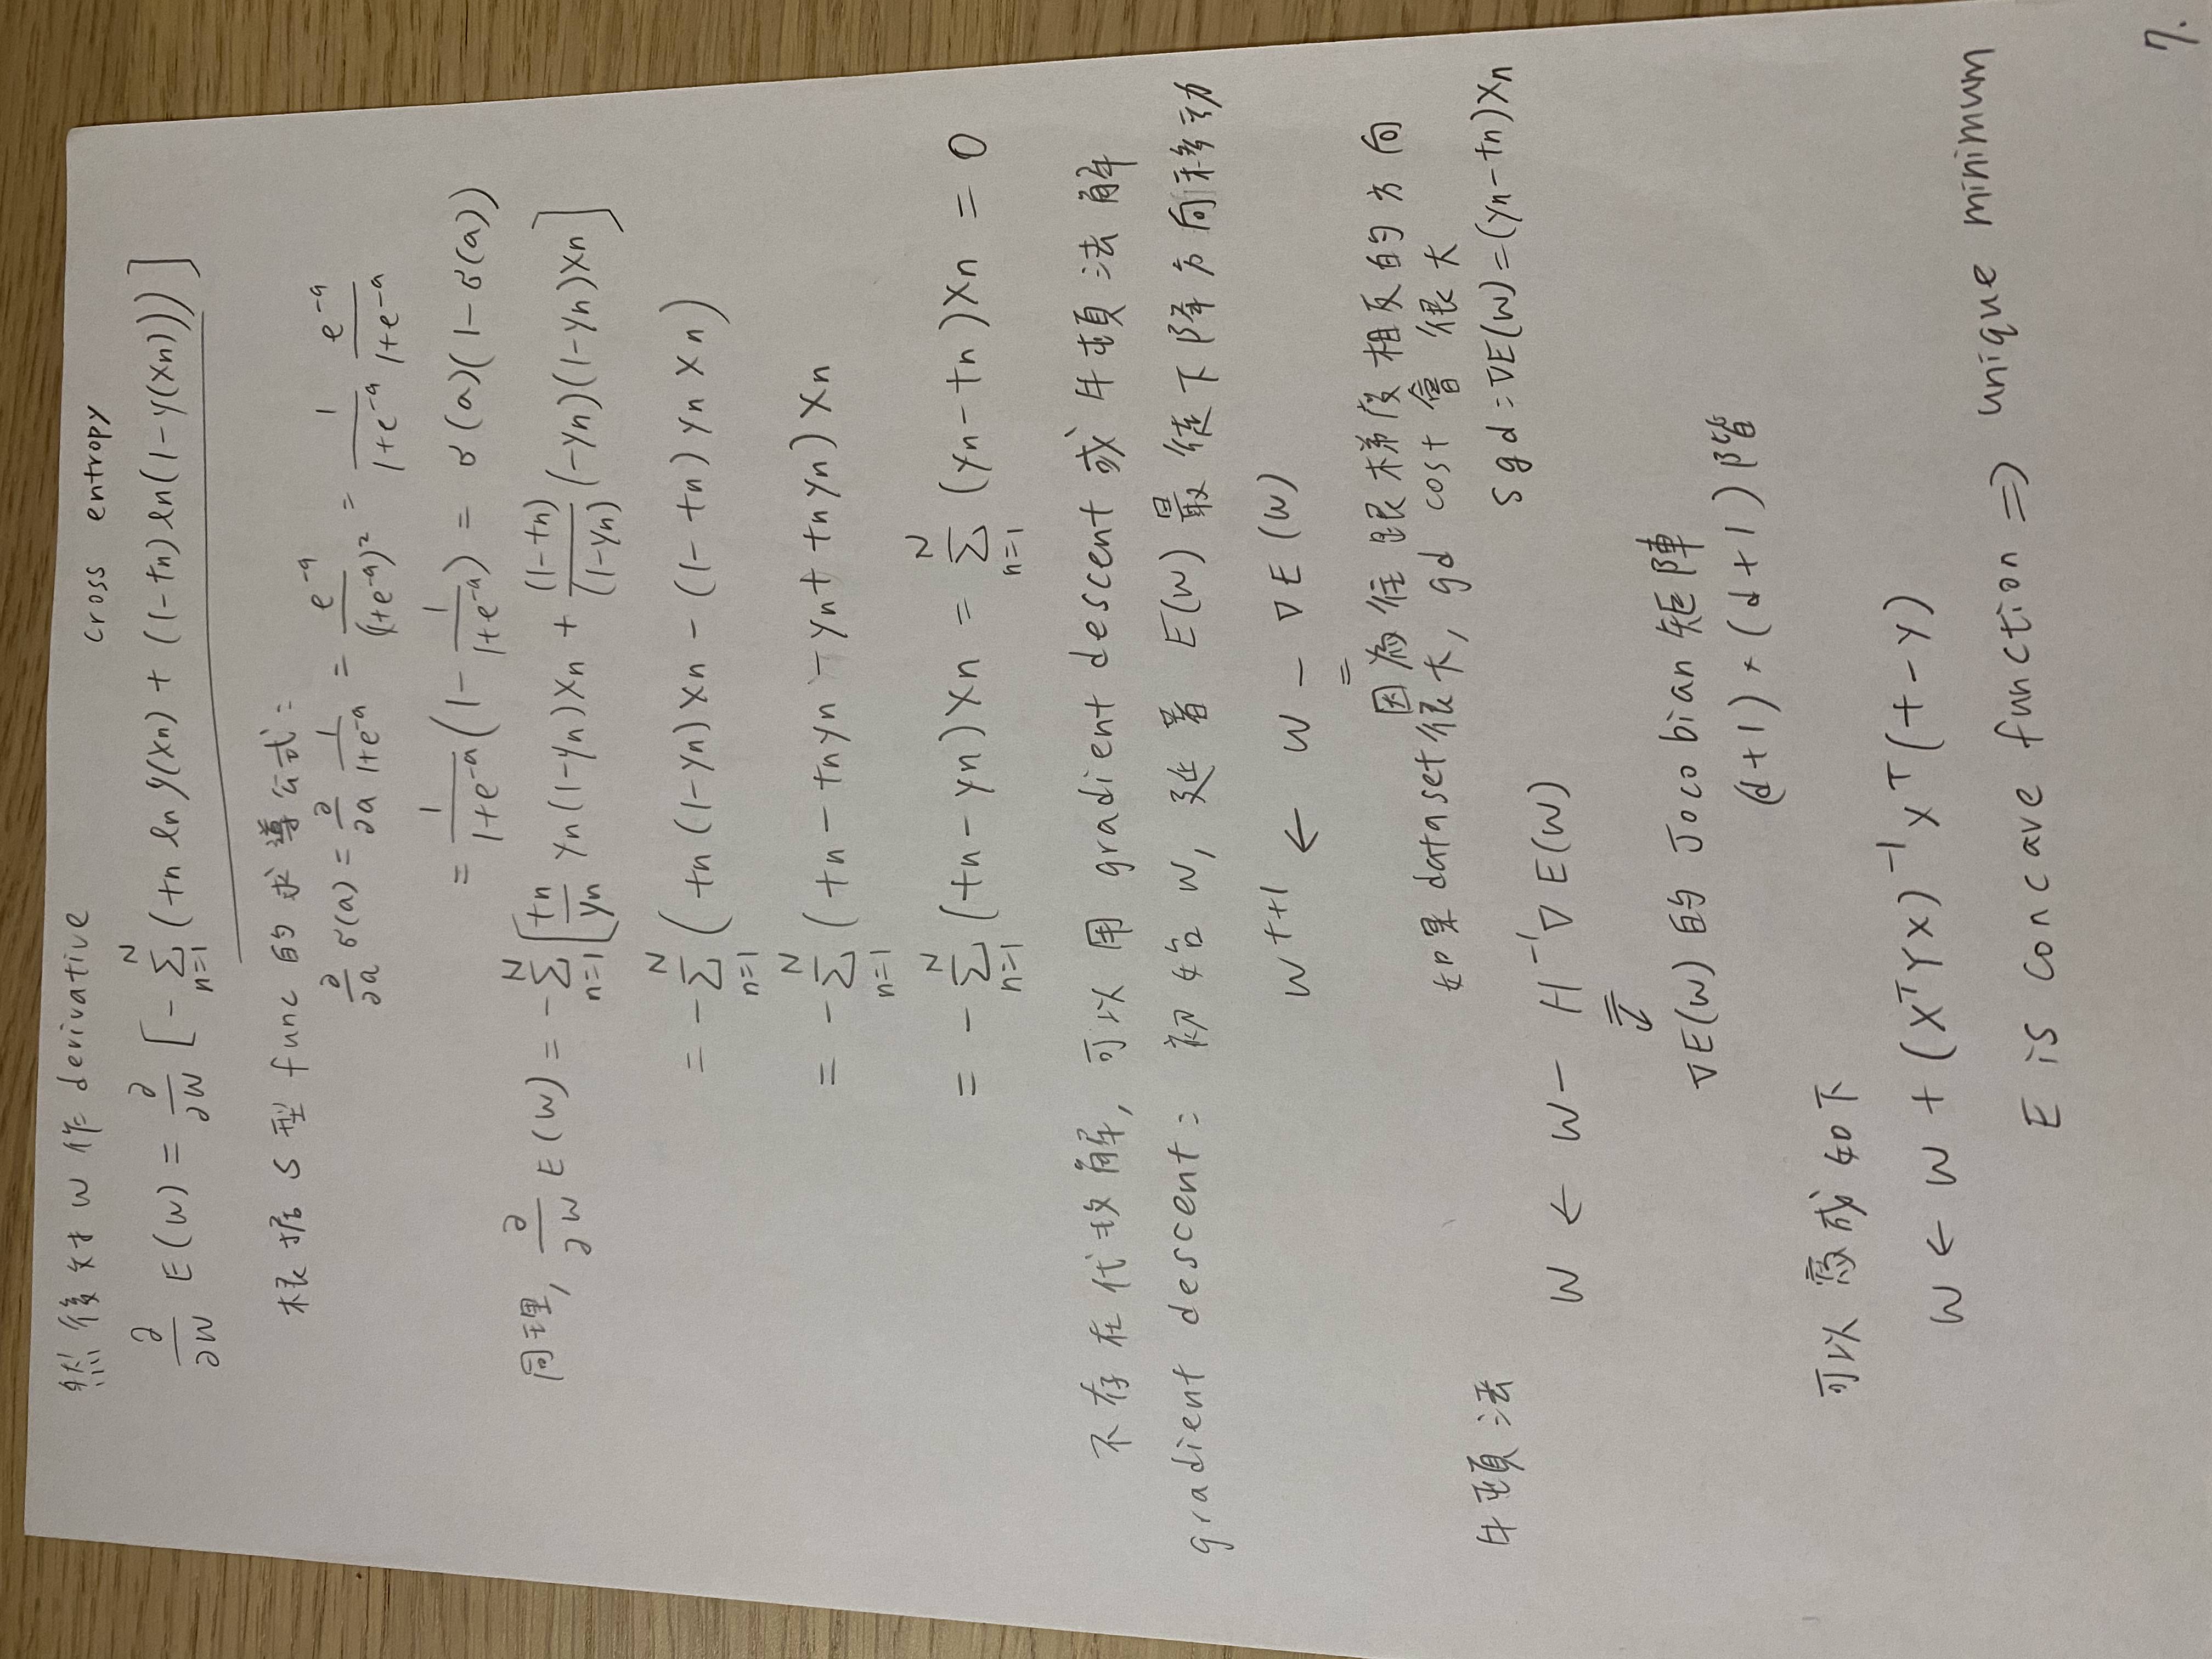 然後对 w 作 derivative
cross entropy
∂/∂w E(w) = ∂/∂w [ - Σ_{n=1}^{N} (tn ln y(xn) + (1-tn) ln(1-y(xn))) ]
根据 S 型 func 的求導公式:
∂/∂a σ(a) = ∂/∂a 1/(1+e^{-a}) = e^{-a}/(1+e^{-a})² = 1/(1+e^{-a}) e^{-a}/(1+e^{-a})
= 1/(1+e^{-a}) (1 - 1/(1+e^{-a})) = σ(a)(1-σ(a))
同理, ∂/∂w E(w) = - Σ_{n=1}^{N} [ tn/yn yn(1-yn)xn + (1-tn)/(1-yn) (-yn)(1-yn)xn ]
= - Σ_{n=1}^{N} ( tn(1-yn)xn - (1-tn)yn xn )
= - Σ_{n=1}^{N} ( tn - tnyn - yn + tnyn ) xn
= - Σ_{n=1}^{N} (tn-yn)xn = Σ_{n=1}^{N} (yn-tn)xn = 0
不存在代数解, 可以用 gradient descent 或牛頓法解
gradient descent: 初始 w, 延著 E(w) 最徒下降方向移动
w^{t+1} ← w - ∇E(w)
因為往跟梯度相反的方向
如果 dataset 很大, gd cost 會很大
sgd: ∇E(w) = (yn-tn)xn
牛頓法
w ← w - H^{-1}∇E(w)
∇E(w) 的 Jocobian 矩陣
(d+1)×(d+1) 階
可以寫成如下
w ← w + (X^T Y X)^{-1} X^T (t-y)
E is concave function ⇒ unique minimum
7.